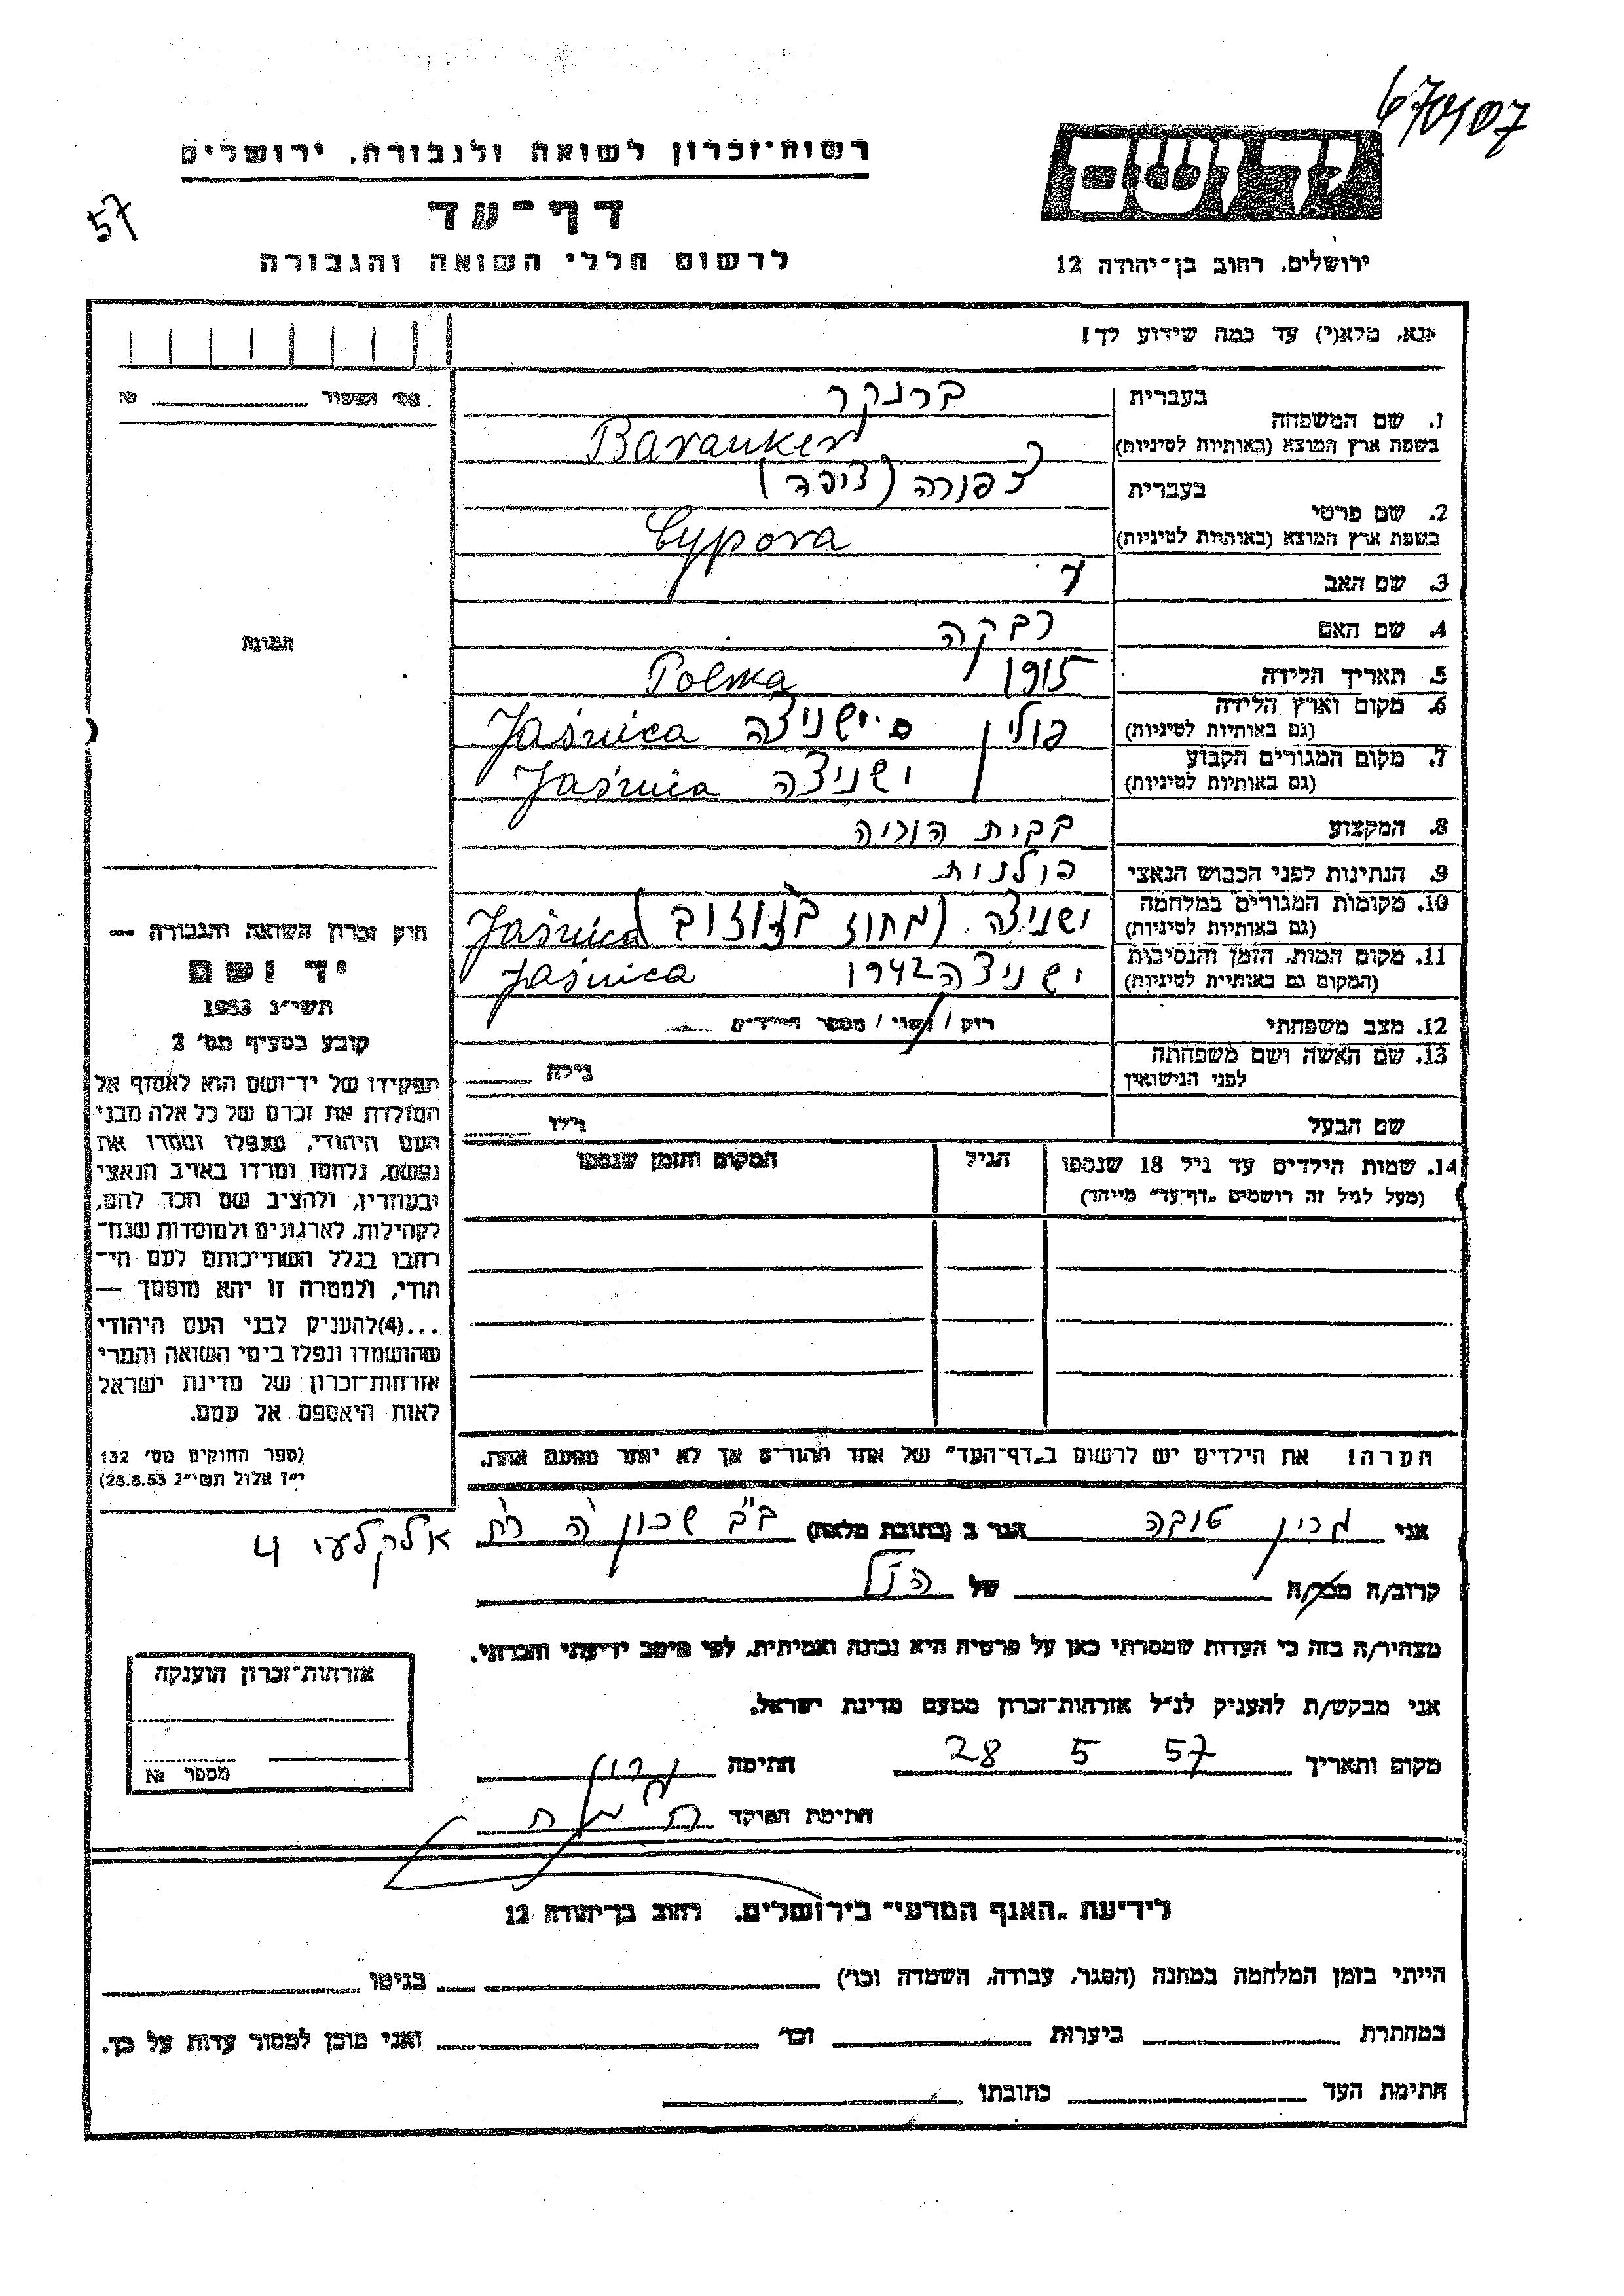 670107
רשות-זכרון לשואה ולגבורה, ירושלים
57
דף-עד
לרשום חללי השואה והגבורה
יד ושם
ירושלים, רחוב בן-יהודה 12
אנא, מלא(י) עד כמה שידוע לך!
מס' האשור № 
1. שם המשפחה
בעברית ברנקר
בשפת ארץ המוצא (באותיות לטיניות) Baranker
2. שם פרטי
בעברית צפורה (ציפה)
בשפת ארץ המוצא (באותיות לטיניות) Cypora
3. שם האב
4. שם האם רבקה
5. תאריך הלידה 1915
6. מקום וארץ הלידה (גם באותיות לטיניות) פולין ישניצה Jaśnica Polska
7. מקום המגורים הקבוע (גם באותיות לטיניות) ישניצה Jaśnica
8. המקצוע בבית הוריה
9. הנתינות לפני הכבוש הנאצי פולנית
10. מקומות המגורים במלחמה (גם באותיות לטיניות) ישניצה (מחוז Jaśnica
11. מקום המות, הזמן והנסיבות (המקום גם באותיות לטיניות) ישניצה 1942 Jaśnica
12. מצב משפחתי רוק / נשוי / מספר הילדים
13. שם האשה ושם משפחתה לפני הנישואין גילה
שם הבעל גילו
14. שמות הילדים עד גיל 18 שנספו (מעל לגיל זה רושמים "דף-עד" מיוחד) הגיל המקום והזמן שנספו
הערה! את הילדים יש לרשום ב"דף-העד" של אחד ההורים אך לא יותר מפעם אחת.
תמונה
חוק זכרון השואה והגבורה —
יד ושם
תשי"ג 1953
קובע בסעיף מס' 2
תפקידו של יד-ושם הוא לאסוף אל
המולדת את זכרם של כל אלה מבני
העם היהודי, שנפלו ומסרו את
נפשם, נלחמו ומרדו באויב הנאצי
ובעוזריו, ולהציב שם וזכר להם,
לקהילות, לארגונים ולמוסדות שנח-
רבו בגלל השתייכותם לעם היה-
הודי, ולמטרה זו יהא מוסמך —
...(4) להעניק לבני העם היהודי
שהושמדו ונפלו בימי השואה והמרי
אזרחות-זכרון של מדינת ישראל
לאות היאספם אל עמם.
(ספר החוקים מס' 132
י"ז אלול תשי"ג 28.8.53)
אני גרין טובה הגר ב (כתובת מלאה) ב"ב שכון ה' רח' אלקלעי 4
קרוב/ה מכר/ה של הנ"ל
מצהיר/ה בזה כי העדות שמסרתי כאן על פרטיה היא נכונה ואמיתית, לפי מיטב ידיעתי והכרתי.
אני מבקש/ת להעניק לנ"ל אזרחות-זכרון מטעם מדינת ישראל.
מקום ותאריך 57 5 28 חתימה גרין
חתימת הפוקד
אזרחות-זכרון הוענקה
מספר №
לידיעת "האגף המדעי" בירושלים, רחוב בן-יהודה 12
הייתי בזמן המלחמה במחנה (הסגר, עבודה, השמדה וכו') בגיטו
במחתרת ביערות וכו' ואני מוכן למסור עדות על כך.
חתימת העד כתובתו